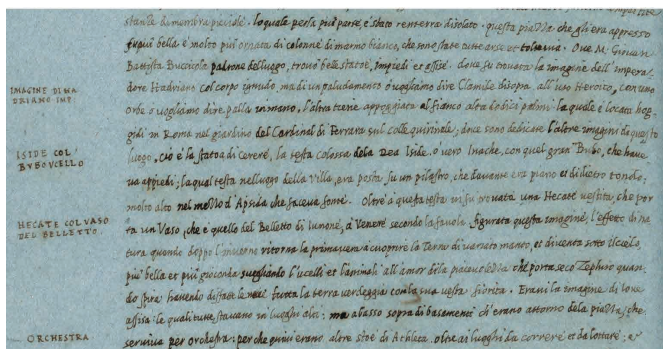 stantie di muratura piccole. loqual e persa più parte, è stato renterra disolato. questa piazza che gli era appresso
fu più bella è molto più ornata di colonne di marmo bianco, che sono state tutte arse et tolte via. Oue M. Giouan
Battista Buccicola patrone del luogo, trouò belle statoe, impiedi et assise. doue fu trouata la imagine dell'Impera-
IMAGINE DI HADRIANO IMP.
dore Hadriano col corpo ignudo, ma di un paludamento ò uogliamo dire Clamide disopra all'uso Heroico, con uno
orbe ò uogliamo dire palla in mano, l'altra tiene appoggiata al fianco alta dodici palmi la quale è locata hog-
gidi in Roma nel giardino del Cardinal di Ferrara sul colle quirinale; doue sono dedicate l'altre imagini di questo
ISIDE COL BVBO VCELLO
luogo, ciò è la statoa di Cerere, la testa colossa dela Dea Iside, ò vero Inache, con quel gran Bubo, che haue-
ua appiedi; la qual testa nel luogo della Villa, era posta su un pilastro, che dauante era piano et di dietro tondo;
molto alto nel mezzo d'Apsida che faceua fonte. Oltre à questa testa ui fu trouata una Hecate vestita, che por
HECATE COL VASO DEL BELLETTO
ta un Vaso, che è quello del Belletto di Iunone, à Venere secondo la fauola. figurata questa imagine, l'effetto di na
tura quando doppo l'inuerno ritorna la primauera à cuoprire la Terra di uariato manto, et diuenta sotto il cielo,
più bella et più gioconda suegliando l'ucelli et l'animali all'amor dela piaceuolezza che porta seco Zephiro quan-
do spira hauendo disfatte le neui tutta la terra uerdeggia con la sua vesta fiorita. Erani la imagine di Ioue
assisa: le quali tutte, stauano in luoghi alti; ma abasso sopra di basamenti ch'erano attorno dela piazza; che
ORCHESTRA
seruiua per orchestra; per che quiui erano, altre statoe di Athleta, oltra ai luoghi da correre et da lottare; et